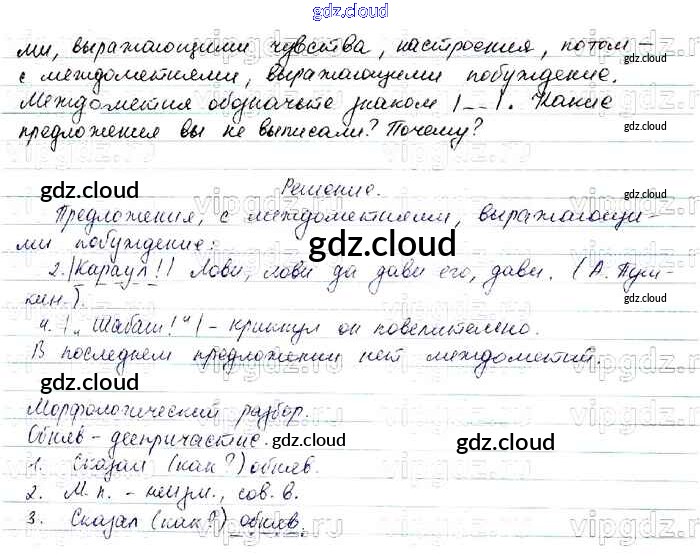 gdz.cloud
ми, выражающими чувства, настроения, потом –
с междометиями, выражающими побуждение.
Междометия обозначьте знаком |__|. Какие
предложения вы не выписали? Почему?
gdz.cloud
Решение.
gdz.cloud
gdz.cloud
Предложения, с междометиями, выражающи-
ми побуждение:
gdz.cloud
2. |Караул!| Лови, лови да дави его, дави. (А. Пуш-
кин.).
4. |„Шабаш!"| – крикнул он повелительно.
В последнем предложении нет междометий.
gdz.cloud
Морфологический разбор.
Обняв – деепричастие.
gdz.cloud
gdz.cloud
gdz.cloud
1. Сказал (как?) обняв.
2. М.п. – неизм., сов. в.
3. Сказал (как?) обняв.
gdz.cloud